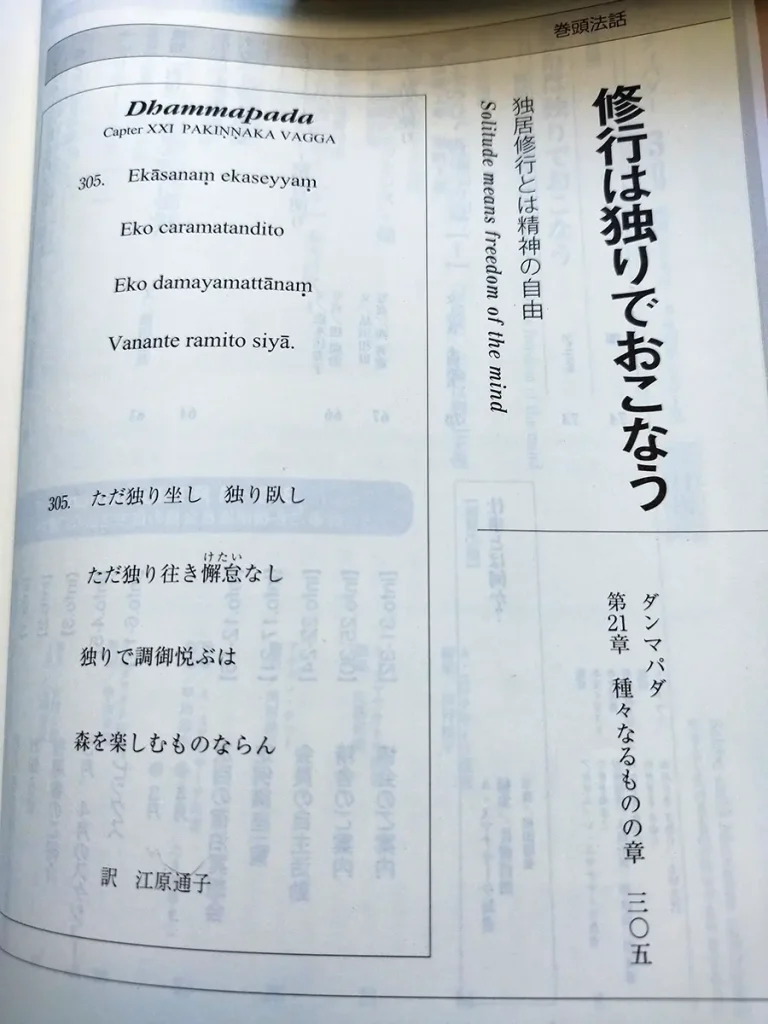 巻頭法話
修行は独りでおこなう
独居修行とは精神の自由
Solitude means freedom of the mind
ダンマパダ
第21章　種々なるものの章　三〇五
Dhammapada
Capter XXI PAKIṆṆAKA VAGGA
305. Ekāsanaṃ ekaseyyaṃ
Eko caramatandito
Eko damayamattānaṃ
Vanante ramito siyā.
305. ただ独り坐し　独り臥し
けたい
ただ独り往き懈怠なし
独りで調御悦ぶは
森を楽しむものならん
訳　江原通子